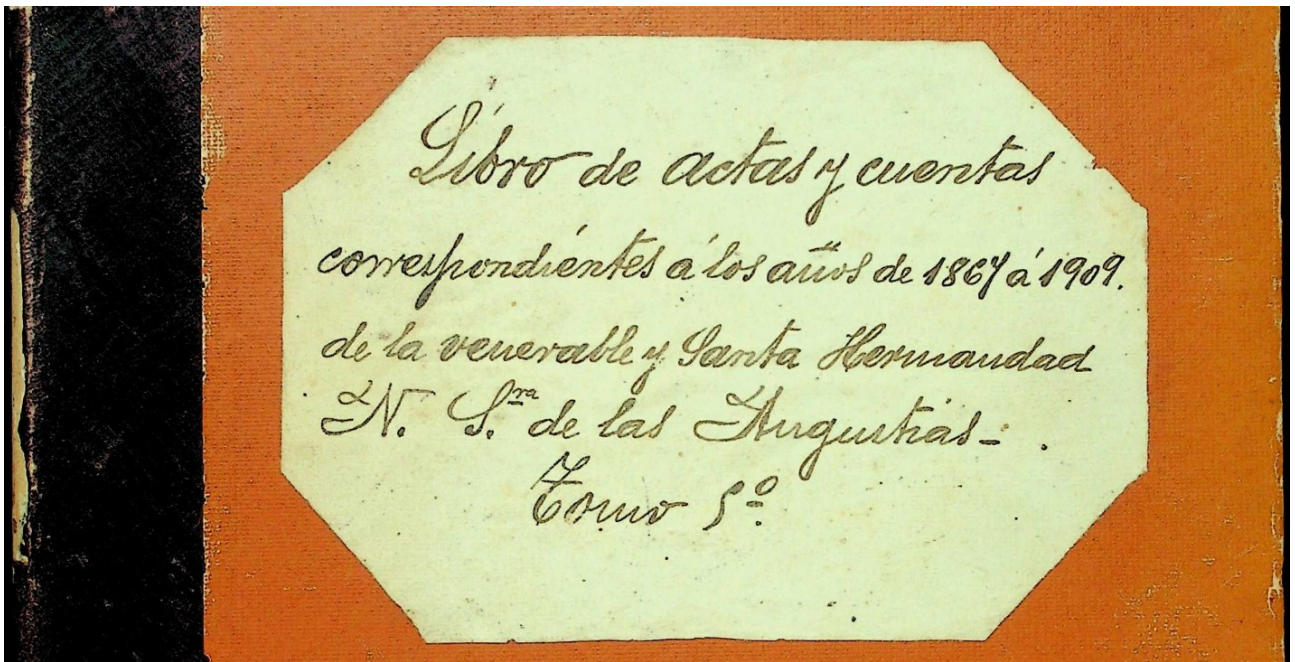 Libro de actas y cuentas
correspondientes á los años de 1867 á 1909.
de la venerable y Santa Hermandad
N. S.ra de las Angustias-.
Tomo 5º.